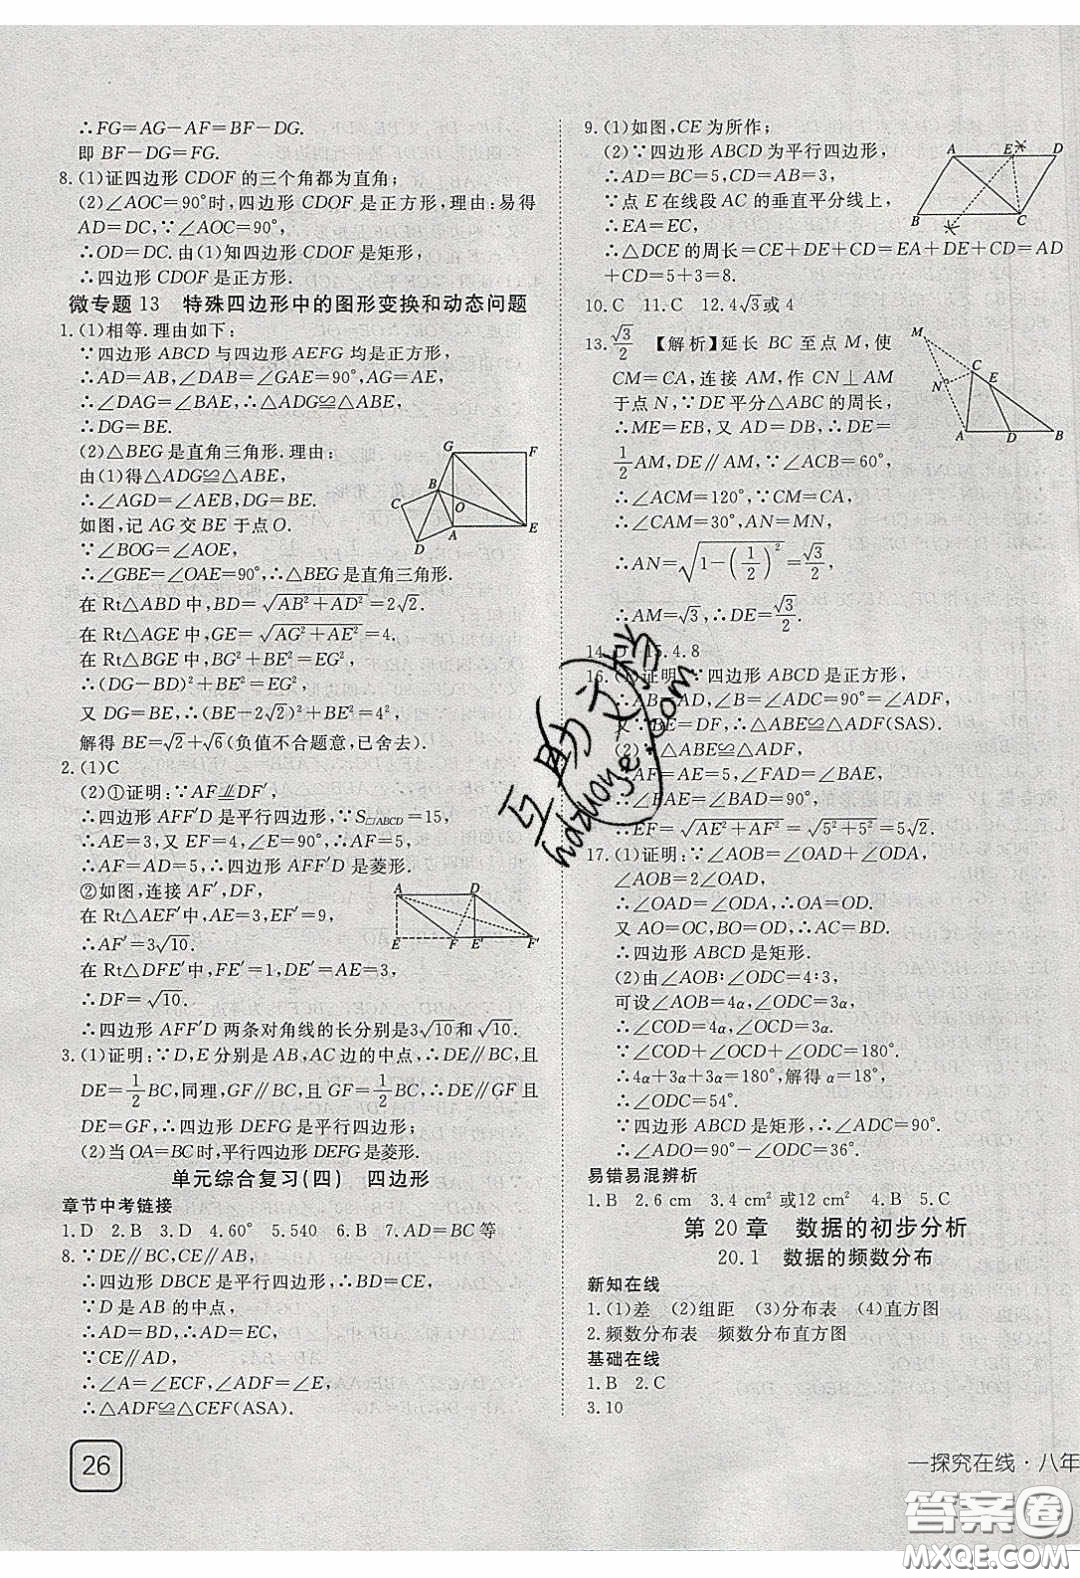 ∴FG=AG-AF=BF-DG.
即 BF-DG=FG.
8.(1)证四边形 CDOF 的三个角都为直角;
(2)∠AOC=90°时,四边形 CDOF 是正方形,理由:易得
AD=DC,∵∠AOC=90°,
∴OD=DC.由(1)知四边形 CDOF 是矩形,
∴四边形 CDOF 是正方形.
微专题 13 特殊四边形中的图形变换和动态问题
1.(1)相等.理由如下:
∵四边形 ABCD 与四边形 AEFG 均是正方形,
∴AD=AB,∠DAB=∠GAE=90°,AG=AE,
∴∠DAG=∠BAE,∴△ADG≌△ABE,
∴DG=BE.
(2)△BEG 是直角三角形.理由:
由(1)得△ADG≌△ABE,
∴∠AGD=∠AEB,DG=BE.
如图,记 AG 交 BE 于点 O.
∵∠BOG=∠AOE,
∴∠GBE=∠OAE=90°,∴△BEG 是直角三角形.
在 Rt△ABD 中,BD=√(AB²+AD²)=2√2.
在 Rt△AGE 中,GE=√(AG²+AE²)=4.
在 Rt△BGE 中,BG²+BE²=EG²,
∴(DG-BD)²+BE²=EG²,
又 DG=BE,∴(BE-2√2)²+BE²=4²,
解得 BE=√2+√6(负值不合题意,已舍去).
2.(1)C
(2)①证明:∵AF⫫DF′,
∴四边形 AFF′D 是平行四边形,∵S▱ABCD=15,
∴AE=3,又 EF=4,∠E=90°,∴AF=5,
∴AF=AD=5,∴四边形 AFF′D 是菱形.
②如图,连接 AF′,DF,
在 Rt△AEF′中,AE=3,EF′=9,
∴AF′=3√10.
在 Rt△DFE′中,FE′=1,DE′=AE=3,
∴DF=√10.
∴四边形 AFF′D 两条对角线的长分别是3√10和√10.
3.(1)证明:∵D,E 分别是 AB,AC 边的中点,∴DE∥BC,且
DE=1/2BC,同理,GF∥BC,且 GF=1/2BC,∴DE∥GF 且
DE=GF,∴四边形 DEFG 是平行四边形;
(2)当 OA=BC 时,平行四边形 DEFG 是菱形.
单元综合复习(四) 四边形
章节中考链接
1.D 2.B 3.D 4.60° 5.540 6.B 7.AD=BC 等
8.∵DE∥BC,CE∥AB,
∴四边形 DBCE 是平行四边形,∴BD=CE,
∵D 是 AB 的中点,
∴AD=BD,∴AD=EC,
∵CE∥AD,
∴∠A=∠ECF,∠ADF=∠E,
∴△ADF≌△CEF(ASA).
26
9.(1)如图,CE 为所作;
(2)∵四边形 ABCD 为平行四边形,
∴AD=BC=5,CD=AB=3,
∵点 E 在线段 AC 的垂直平分线上,
∴EA=EC,
∴△DCE 的周长=CE+DE+CD=EA+DE+CD=AD
+CD=5+3=8.
10.C 11.C 12.4√3或 4
13.√3/2 【解析】延长 BC 至点 M,使
CM=CA,连接 AM,作 CN⊥AM
于点 N,∵DE 平分△ABC 的周长,
∴ME=EB,又 AD=DB,∴DE=
1/2AM,DE∥AM,∵∠ACB=60°,
∴∠ACM=120°,∵CM=CA,
∴∠CAM=30°,AN=MN,
∴AN=√(1-(1/2)²)=√3/2,
∴AM=√3,∴DE=√3/2.
14.D 15.4.8
16.(1)证明:∵四边形 ABCD 是正方形,
∴AB=AD,∠B=∠ADC=90°=∠ADF,
又∵BE=DF,∴△ABE≌△ADF(SAS).
(2)∵△ABE≌△ADF,
∴AF=AE=5,∠FAD=∠BAE,
∴∠FAE=∠BAD=90°,
∴EF=√(AE²+AF²)=√(5²+5²)=5√2.
17.(1)证明:∵∠AOB=∠OAD+∠ODA,
∠AOB=2∠OAD,
∴∠OAD=∠ODA,∴OA=OD.
又 AO=OC,BO=OD,∴AC=BD.
∴四边形 ABCD 是矩形.
(2)由∠AOB∶∠ODC=4∶3,
可设∠AOB=4α,∠ODC=3α,
∴∠COD=4α,∠OCD=3α,
∵∠COD+∠OCD+∠ODC=180°.
∴4α+3α+3α=180°,解得 α=18°,
∴∠ODC=54°.
∵四边形 ABCD 是矩形,∴∠ADC=90°,
∴∠ADO=90°-∠ODC=36°.
易错易混辨析
1.B 2.6 cm 3.4 cm²或12 cm² 4.B 5.C
第 20 章 数据的初步分析
20.1 数据的频数分布
新知在线
1.(1)差 (2)组距 (3)分布表 (4)直方图
2.频数分布表 频数分布直方图
基础在线
1.B 2.C
3.10
一探究在线·八年
G F B C O D A E
A D E F E′ F′
A E D B C
M C E N A D B
互助文档
hdzuoye.com
答案圈
MXQE.COM